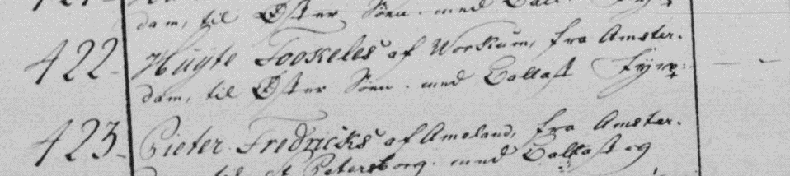 dam, til Øster Söen. med Ball.
422. Hugte Fookeles af Workum, fra Amster-
dam, til Øster Söen. med Ballast Fyr.
423. Pieter Fredricks af Ameland, fra Amster-
til St Petersborg. med Ballast og